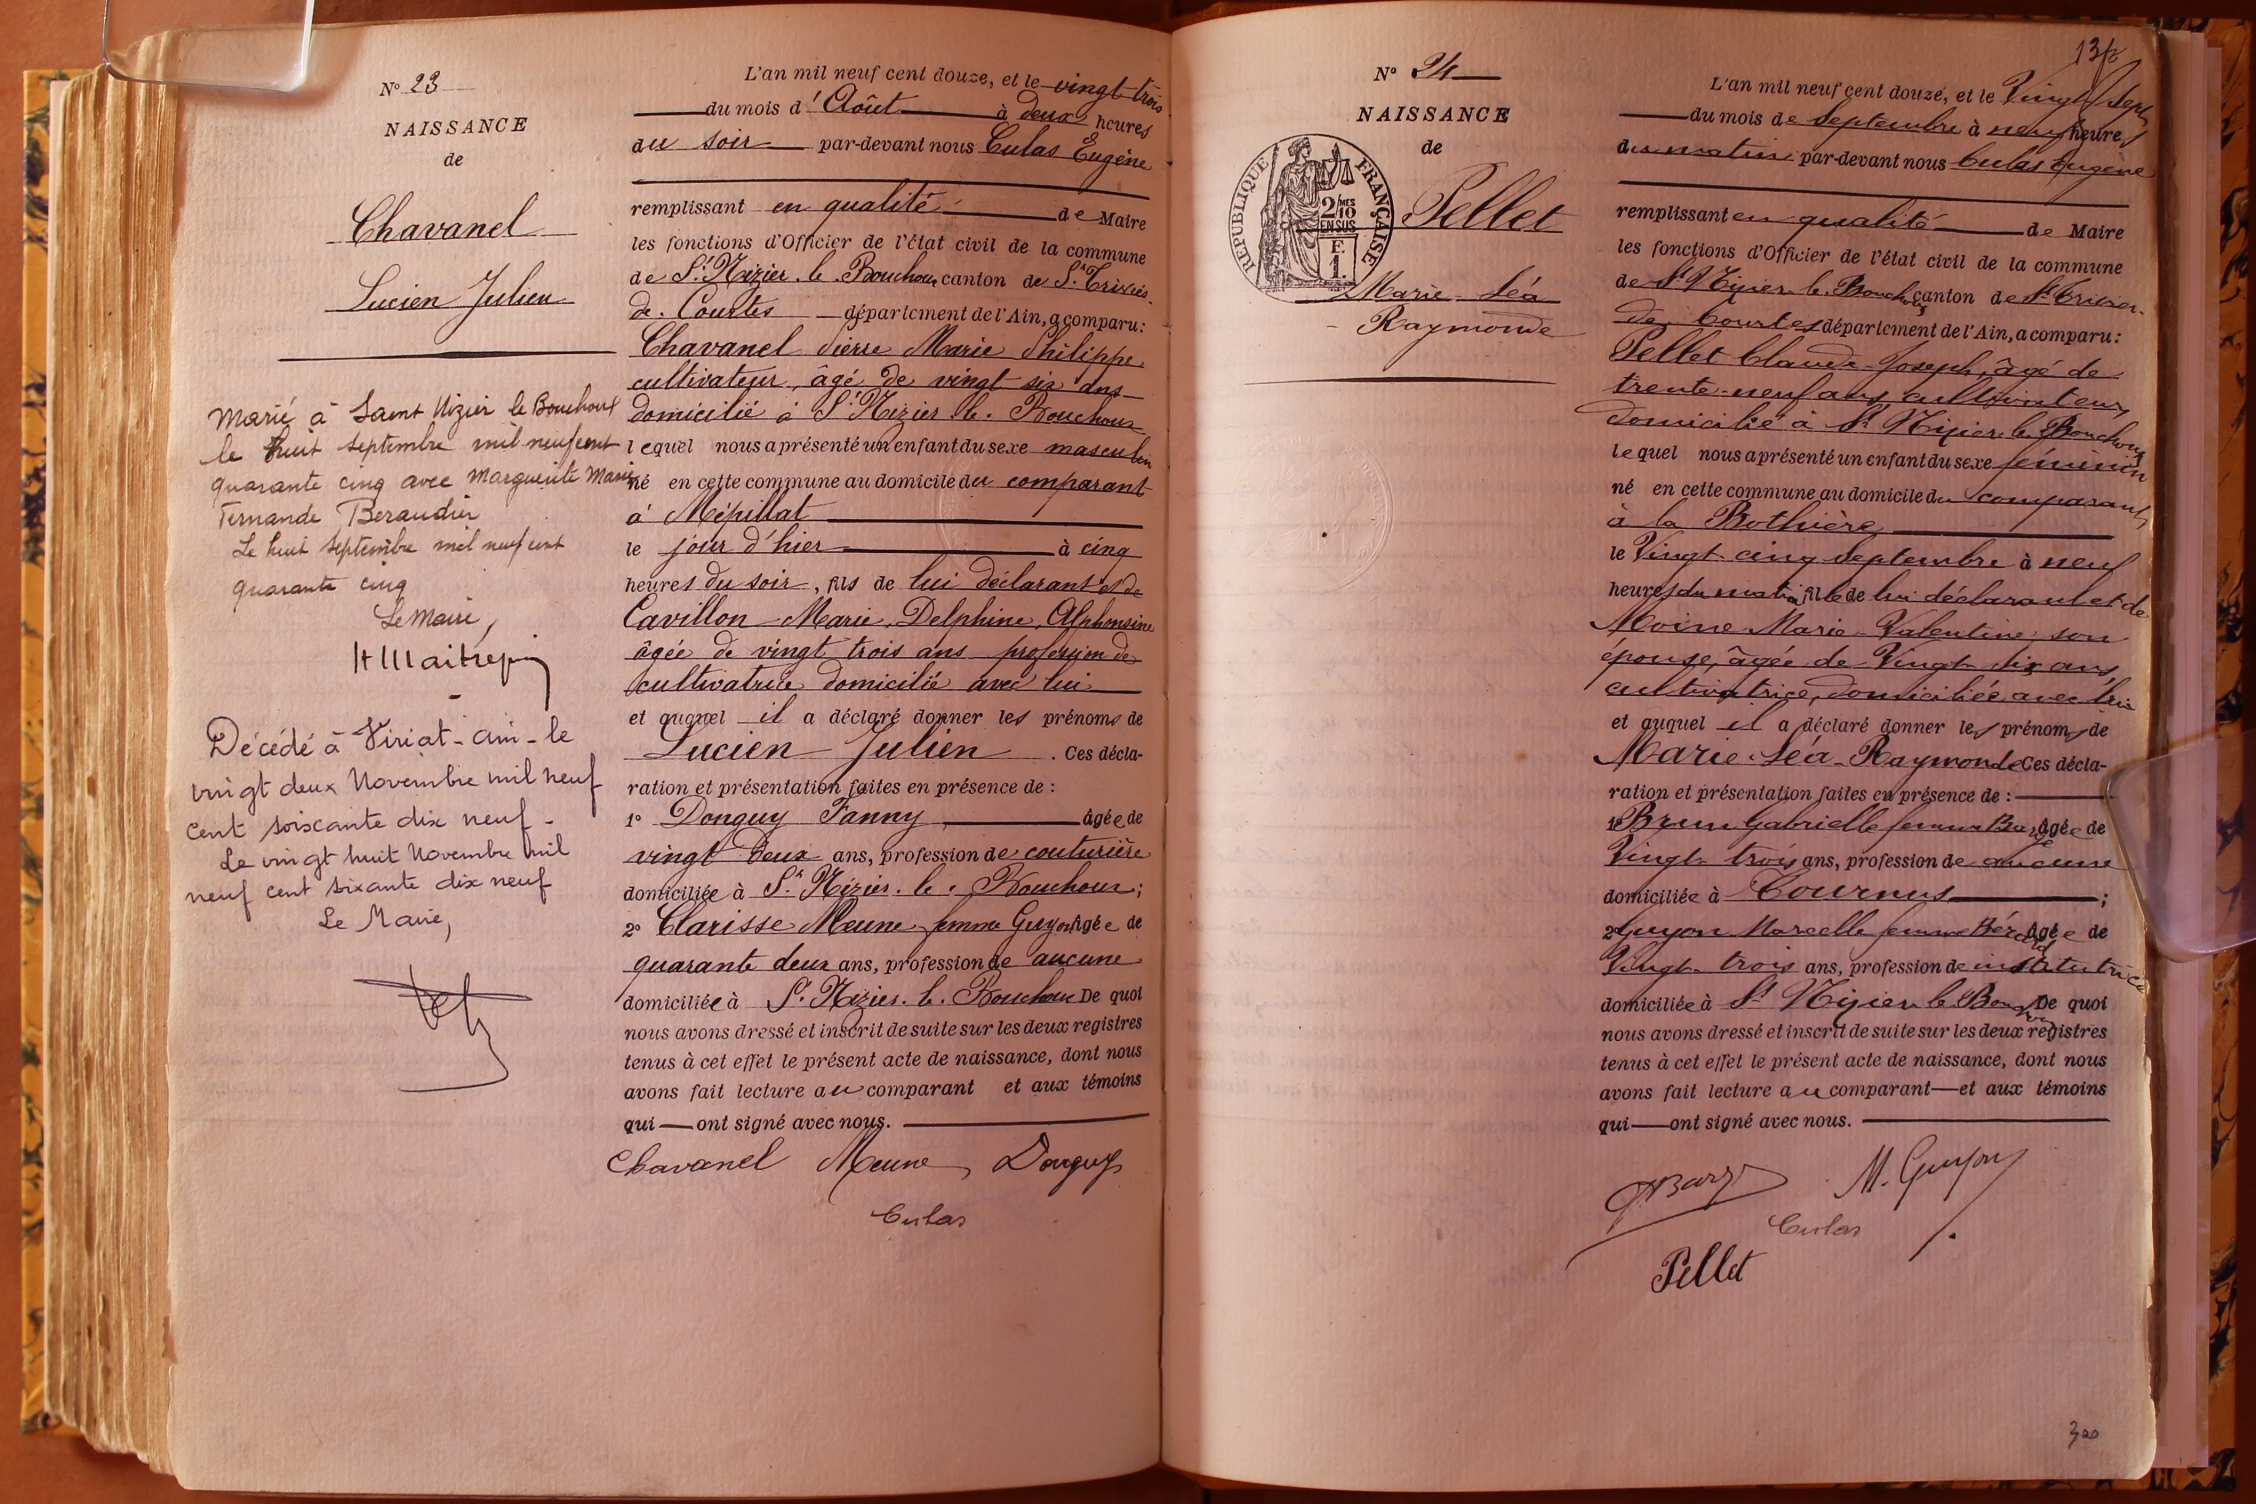 N° 23
NAISSANCE
de
Chavanel
Lucien Julien
Marié à Saint Nizier le Bouchoux
le huit septembre mil neuf cent
quarante cinq avec Marguerite Marie
Fernande Beraudier
Le huit septembre mil neuf cent
quarante cinq
Le Maire,
H Maitrepierre
Décédé à Viriat - Ain - le
vingt deux Novembre mil neuf
cent soixante dix neuf -
Le vingt huit Novembre mil
neuf cent soixante dix neuf
Le Maire,
L'an mil neuf cent douze, et le vingt trois
du mois d'Août à deux heures
du soir par-devant nous Culas Eugène
remplissant en qualité de Maire
les fonctions d'Officier de l'état civil de la commune
de St Nizier le Bouchoux canton de St Trivier-
de Courtes département de l'Ain, a comparu:
Chavanel Pierre Marie Philippe
cultivateur, âgé de vingt six ans
domicilié à St Nizier le Bouchoux
lequel nous a présenté un enfant du sexe masculin
né en cette commune au domicile du comparant
à Mépillat
le jour d'hier à cinq
heures du soir, fils de lui déclarant et de
Cavillon Marie, Delphine, Alphonsine
âgée de vingt trois ans profession de
cultivatrice domicilié avec lui
et auquel il a déclaré donner les prénoms de
Lucien Julien. Ces décla-
ration et présentation faites en présence de :
1° Donguy Fanny, âgée de
vingt deux ans, profession de couturière
domiciliée à St Nizier le Bouchoux;
2° Clarisse Meune femme Guyon âgée de
quarante deux ans, profession de aucune
domiciliée à St Nizier le Bouchoux De quoi
nous avons dressé et inscrit de suite sur les deux registres
tenus à cet effet le présent acte de naissance, dont nous
avons fait lecture au comparant et aux témoins
qui ont signé avec nous.
Chavanel Meune Donguy
Culas
13
N° 24
NAISSANCE
de
Pellet
Marie Léa
Raymonde
RÉPUBLIQUE FRANÇAISE
2/10 MES
EN SUS
F.
1.
L'an mil neuf cent douze, et le Vingt Sept
du mois de septembre à neuf heures
du matin par-devant nous Culas Eugène
remplissant en qualité de Maire
les fonctions d'Officier de l'état civil de la commune
de St Nizier le Bouchoux canton de St Trivier-
de Courtes département de l'Ain, a comparu:
Pellet Claude Joseph, âgé de
trente-neuf ans, cultivateur,
domicilié à St Nizier le Bouchoux
lequel nous a présenté un enfant du sexe féminin
né en cette commune au domicile du comparant
à la Bothière
le Vingt cinq Septembre à neuf
heures du matin, fille de lui déclarant et de
Moine Marie-Valentine, son
épouse, âgée de Vingt dix ans,
cultivatrice, domiciliée avec lui
et auquel il a déclaré donner les prénoms de
Marie-Léa-Raymonde Ces décla-
ration et présentation faites en présence de :
1° Brun Gabrielle femme âgée de
Vingt trois ans, profession de aucune
domiciliée à Tournus;
2° Guyon Marcelle femme âgée de
Vingt-trois ans, profession de institutrice
domiciliée à St Nizier le Bouchoux De quoi
nous avons dressé et inscrit de suite sur les deux registres
tenus à cet effet le présent acte de naissance, dont nous
avons fait lecture au comparant et aux témoins
qui ont signé avec nous.
M. Guyon
Culas
Pellet